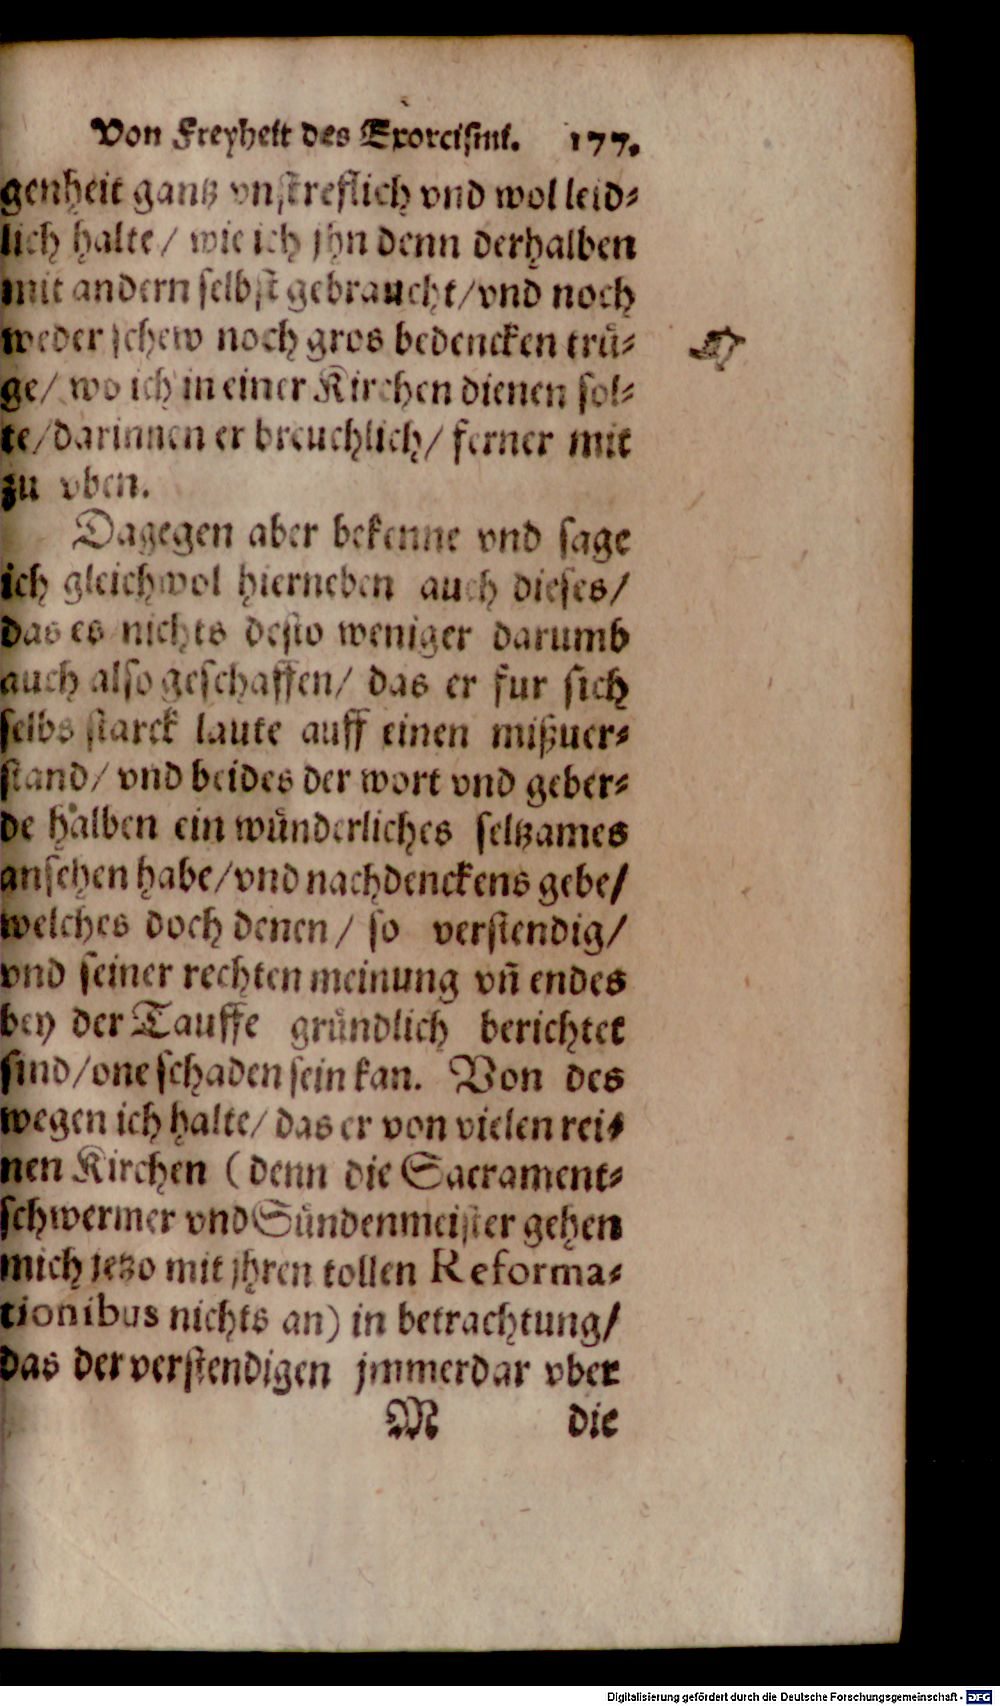 Von Freyheit des Exorcismi. 177.
genheit gantz vnstreflich vnd wol leid⸗
lich halte/ wie ich jhn denn derhalben
mit andern selbst gebraucht/vnd noch
weder schew noch gros bedencken truͤ⸗
ge/ wo ich in einer Kirchen dienen sol⸗
te/darinnen er breuchlich/ ferner mit
zu vben.
Dagegen aber bekenne vnd sage
ich gleichwol hierneben auch dieses/
das es nichts desto weniger darumb
auch also geschaffen/ das er fur sich
selbs starck laute auff einen mißuer⸗
stand/ vnd beides der wort vnd geber⸗
de halben ein wuͤnderliches seltzames
ansehen habe/vnd nachdenckens gebe/
welches doch denen/ so verstendig/
vnd seiner rechten meinung vñ endes
bey der Tauffe gruͤndlich berichtet
sind/one schaden sein kan. Von des
wegen ich halte/ das er von vielen rei⸗
nen Kirchen (denn die Sacrament⸗
schwermer vnd Suͤndenmeister gehen
mich jetzo mit jhren tollen Reforma⸗
tionibus nichts an) in betrachtung/
das der verstendigen jmmerdar vber
M die
Digitalisierung gefördert durch die Deutsche Forschungsgemeinschaft - DFG